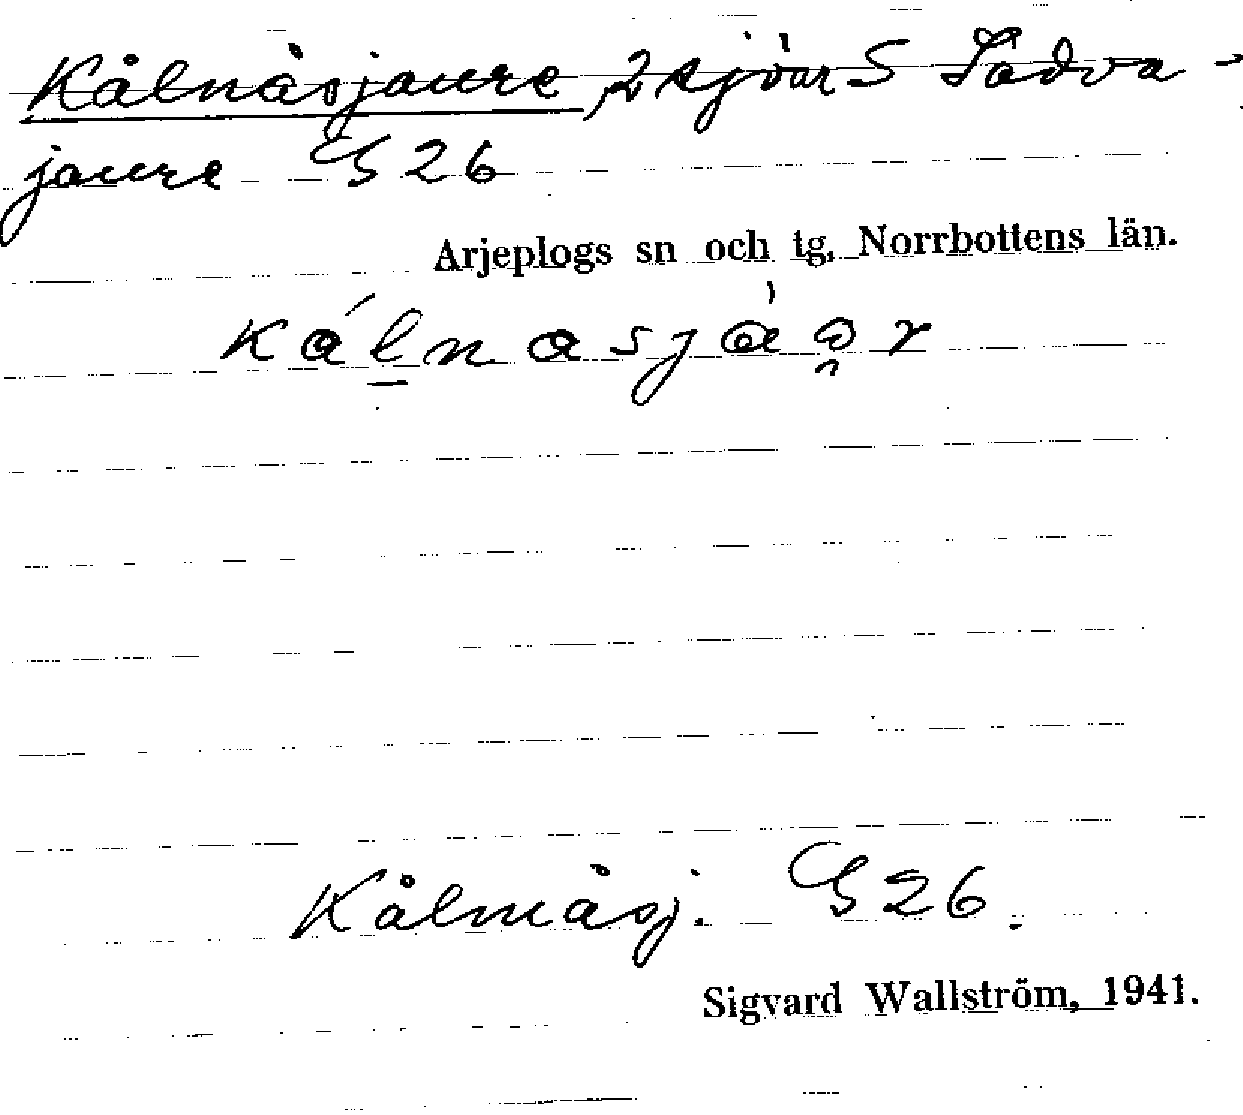 Kålmåsjaure, 2 sjöar S Sadva-
jaure G 26
Arjeplogs sn och tg, Norrbottens län.
kálmasjàər
Kålmåsj. G 26.
Sigvard Wallström, 1941.